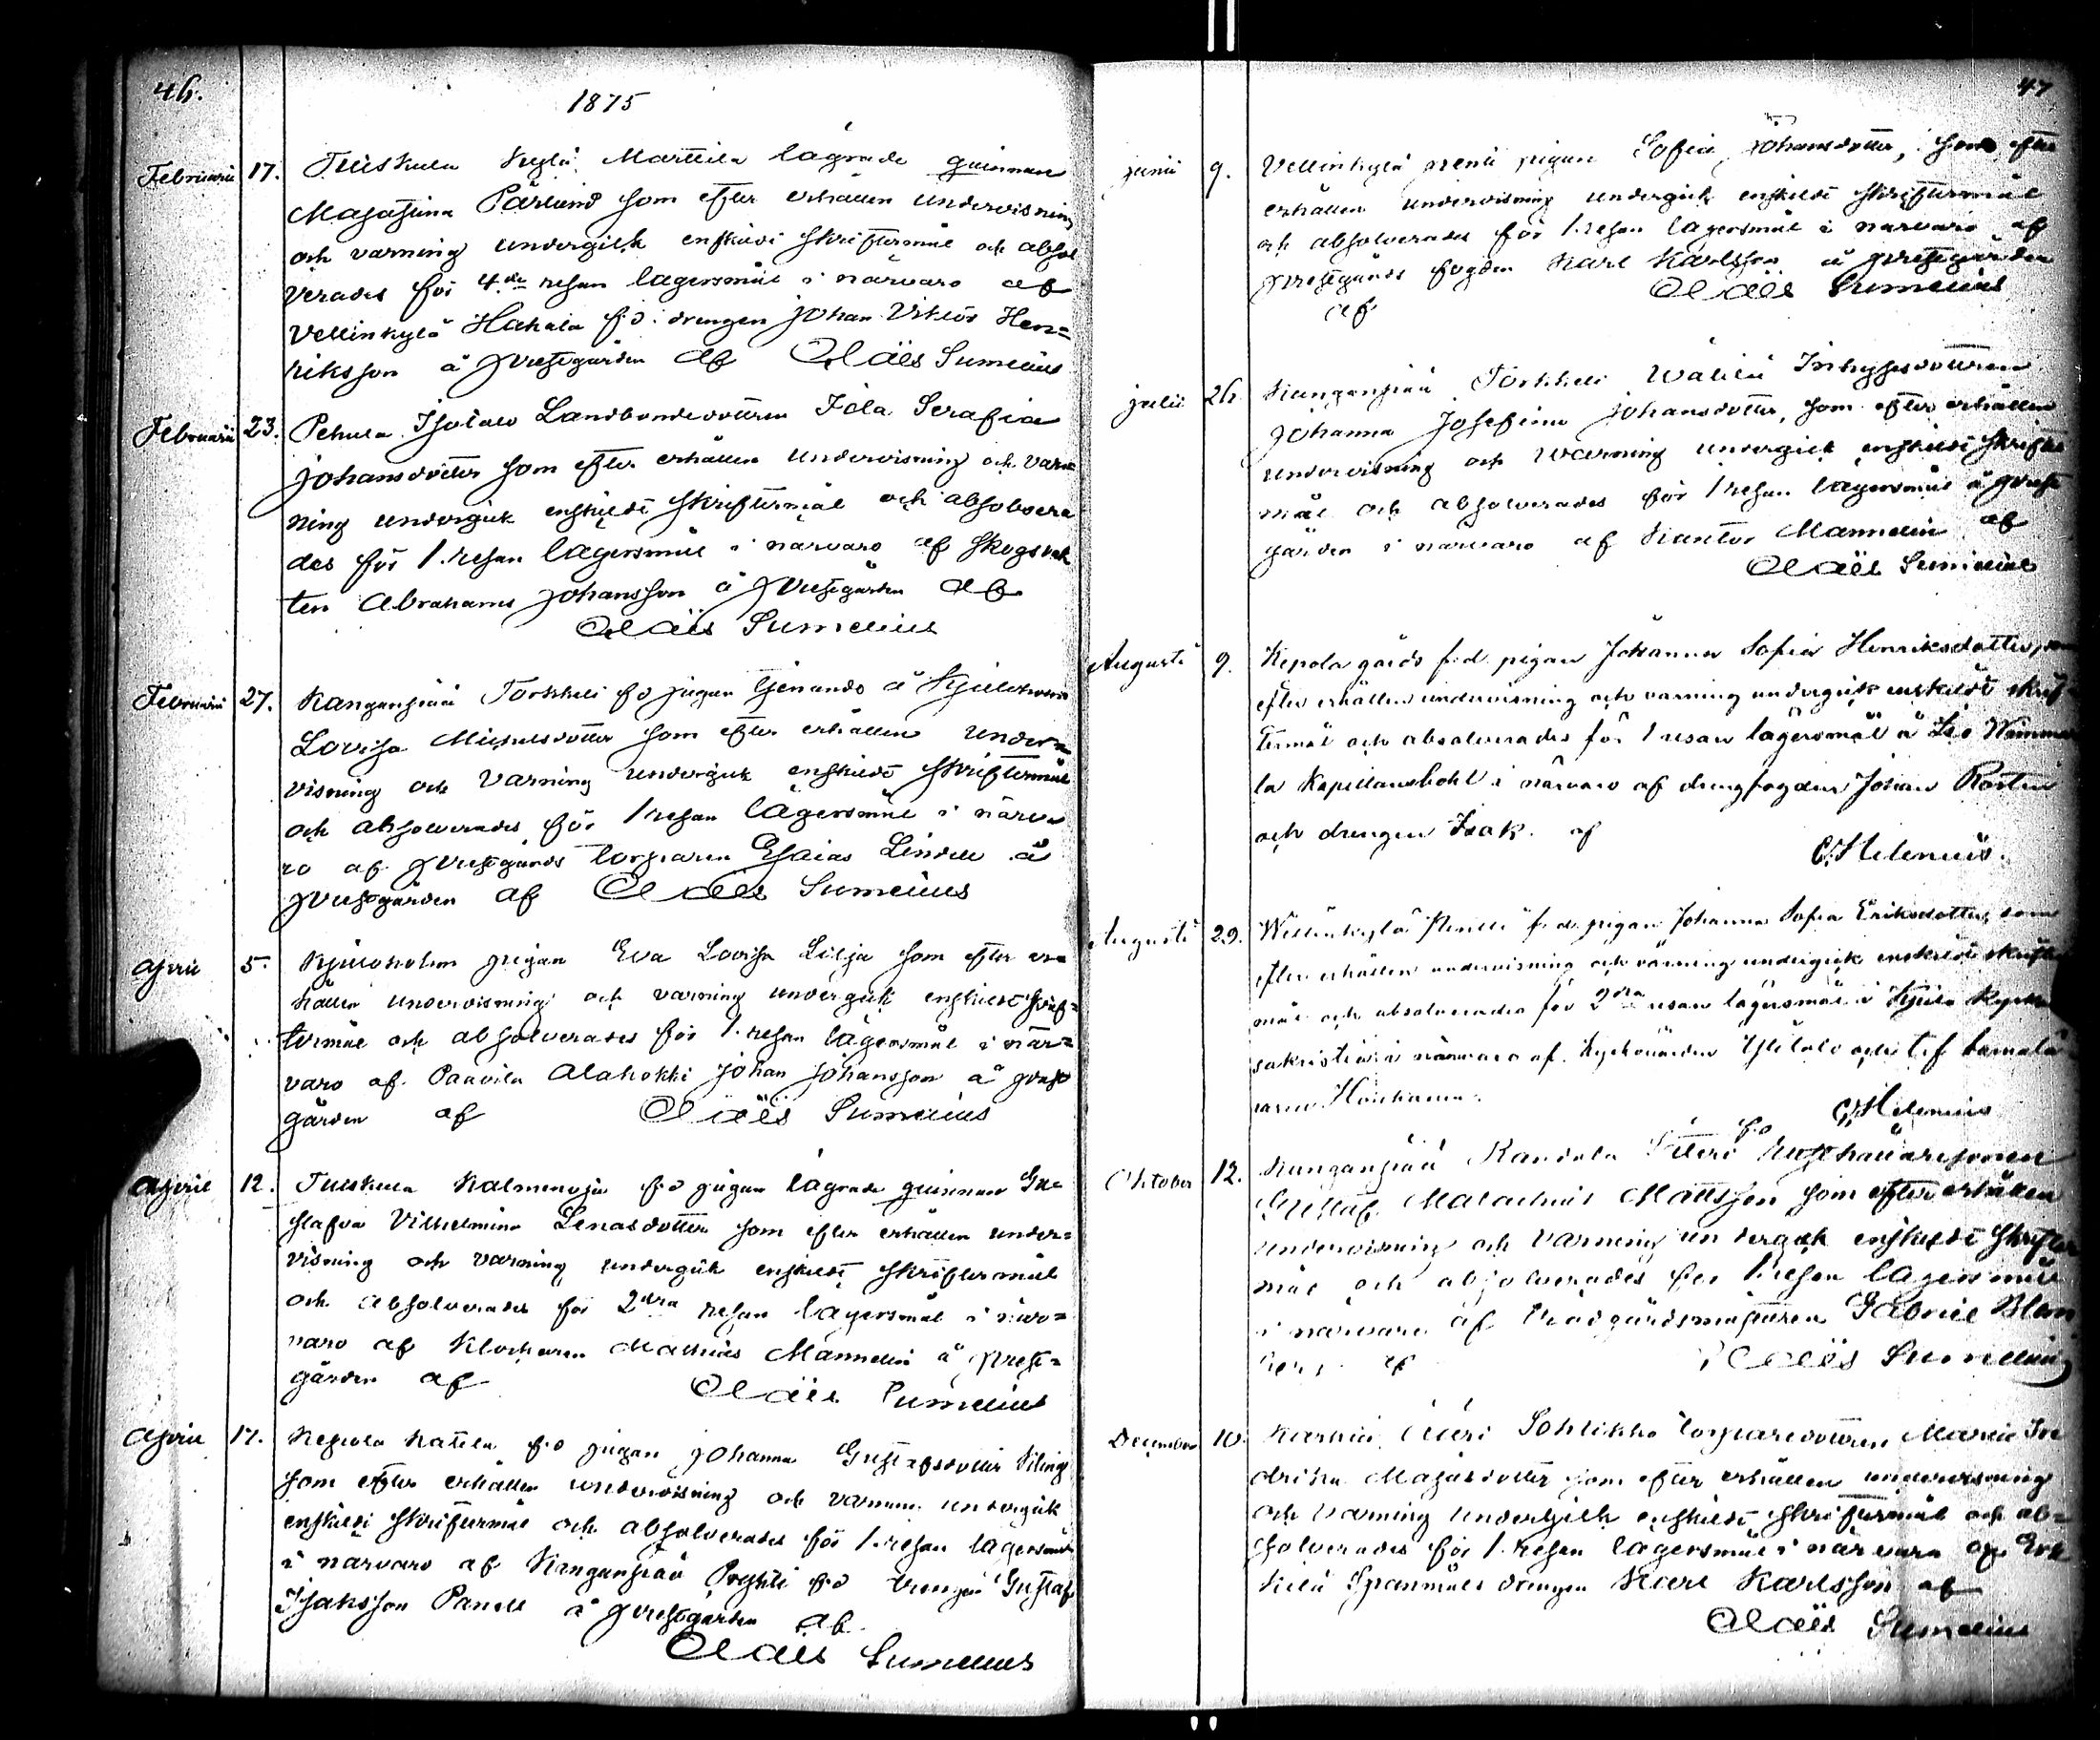 46.
1875
Februarii 17. Tuiskula Kylä Marttila lägrade quinnan
Majastina Pärlund som efter erhållen undervisning
och varning undergick enskildt skriftermål och absol
verades för 4.de resan lägersmål i närvaro af
Vellinkylä Hakala f.d. drengen Johan Viktor Hen=
riksson å prestgården af Claës Sumelius
Februarii 23. Pehula Isotalo Landbondedottren Ida Serafia
Johansdotter som efter erhållen undervisning och var
ning undergick enskildt skriftermål och absolvera
des för 1. resan lägersmål i närvaro af skogsvak
ten Abrahams Johansson å prestgården af
Claës Sumelius
Februarii 27. Kanganpää Torkkeli f.d pigan tjenande å Kjuloholm
Lovisa Michelsdotter som efter erhållen under=
visning och varning undergick enskildt skriftermål
och absolverades för 1 resan lägersmål i närva
ro af prestgårds torparen Esaias Lindell å
prestgården af Claës Sumelius
April 5. Kjuloholm pigan Eva Lovisa Lilja som efter er=
hållen undervisning och varning undergick enskildt skrif=
termål och absolverades för 1. resan lägersmål i när=
varo af Paavila Alahokki Johan Johansson å prest
gården af Claës Sumelius
April 12. Tuiskula Kalmenoja f.d pigan lägrade quinnan Gu
stafva Vilhelmina Lenasdotter som efter erhållen under=
visning och varning undergick enskildt skriftermål
och absolverades för 2dra resan lägersmål i när=
varo af Klockaren Mathias Mannelin å prest=
gården af Claës Sumelius
April 17. Kepola Kattila f.d pigan Johanna Gustafsdotter
som efter erhållen undervisning och varning undergick
enskildt skriftermål och absolverades för 1. resan lägersmål
i närvaro af Kanganpää f.d drengen Gustaf
Isaksson å prestgården af
Claës Sumelius
47
Junii 9. Vellinkylä pigan Sofia Johansdotter, som efter
erhållen undervisning undergick enskildt skriftermål
och absolverades för 1. resan lägersmål i närvaro af
prestgårds fogden Karl Karlsson å prestgården
af Claës Sumelius
Julii 26. Kanganpää Torkkeli Inhysesdottren
Johanna Josefina Johansdotter, som efter erhållen
undervisning och warning undergick enskildt skrifter
mål och absolverades för 1 resan lägersmål å prest
gården i närvaro af Kantor Mannelin af
Claës Sumelius
Augusti 9. Kepola gårds f.d. pigan Johanna Sofia Henriksdotter, som
efter erhållen undervisning och varning undergick enskildt skrif=
termål och absolverades för 1 resan lägersmål å Iso Wimma
la Kapellansbohl i närvaro af drengfogden Johan
och drengen Isak. af
C. Helenius.
Augusti 29. Willinkylä f.d. pigan Johanna Sofia Eriksdotter, som
efter erhållen undervisning och varning undergick enskildt skrifter
mål och absolverades för 2dra resan lägersmål i Kjulo Kyrkas
sakristia i närvaro af Kyrkovärden Ylitalo och

C. Helenius
Oktober 12. Kanganpää f.d
Gustaf Malachias Mattsson som efter erhållen
undervisning och varning undergick enskildt skrifter
mål och absolverades för 1. resan lägersmål
i närvaro af trädgårdsmästaren Gabriel Blom
af Claës Sumelius
December 10. Sohlikko torparedottren Maria Fre
drika Majasdotter som efter erhållen undervisning
och varning undergick enskildt skriftermål och ab=
solverades för 1. resan lägersmål i närvaro af
drengen Karl Karlsson af
Claës Sumelius